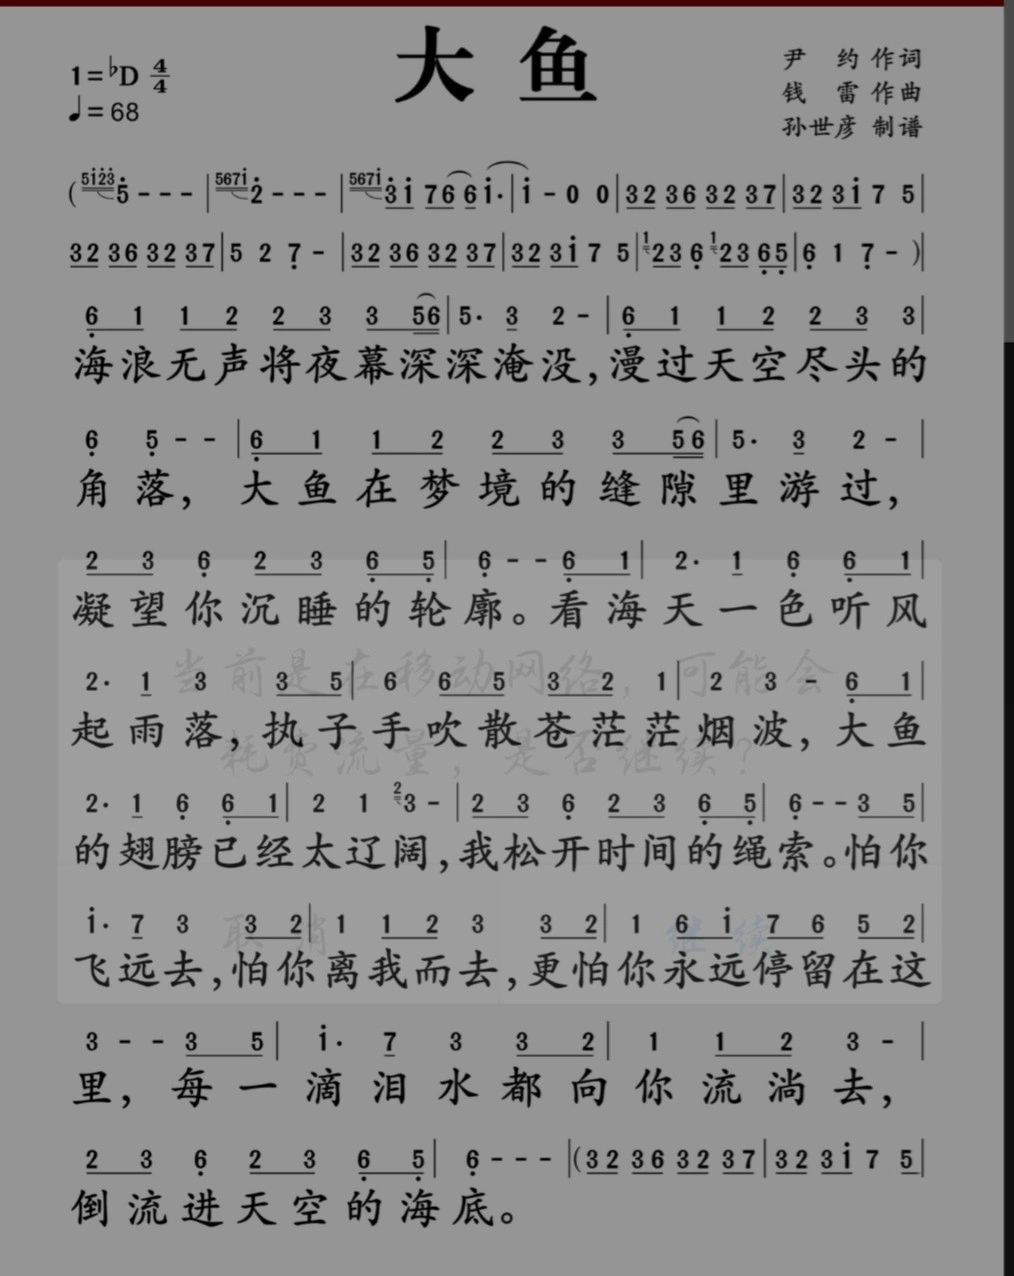 大鱼
1=♭D 4/4
♩=68
尹 约 作词
钱 雷 作曲
孙世彦 制谱
(5i23 5 - - - | 567i 2 - - - | 567i 3i 76 6 i· | i - 0 0 | 32 36 32 37 | 32 3i 7 5 |
32 36 32 37 | 5 2 7 - | 32 36 32 37 | 32 3i 7 5 | 1 23 6 1 23 65 | 6 1 7 - )|
6 1 1 2 2 3 3 56 | 5· 3 2 - | 6 1 1 2 2 3 3 |
海浪无声将夜幕深深淹没,漫过天空尽头的
6 5 - - | 6 1 1 2 2 3 3 56 | 5· 3 2 - |
角落,大鱼在梦境的缝隙里游过,
2 3 6 2 3 6 5 | 6 - - 6 1 | 2· 1 6 6 1 |
凝望你沉睡的轮廓。看海天一色听风
当前是在移动网络，可能会
2· 1 3 3 5 | 6 6 5 3 2 1 | 2 3 - 6 1 |
起雨落,执子手吹散苍茫茫烟波,大鱼
耗费流量，是否继续?
2· 1 6 6 1 | 2 1 2 3 - | 2 3 6 2 3 6 5 | 6 - - 3 5 |
的翅膀已经太辽阔,我松开时间的绳索。怕你
i· 7 3 3 2 | 1 1 2 3 3 2 | 1 6 i 7 6 5 2 |
取消 继续
飞远去,怕你离我而去,更怕你永远停留在这
3 - - 3 5 | i· 7 3 3 2 | 1 1 2 3 - |
里,每一滴泪水都向你流淌去,
2 3 6 2 3 6 5 | 6 - - - |(32 36 32 37 | 32 3i 7 5 |
倒流进天空的海底。